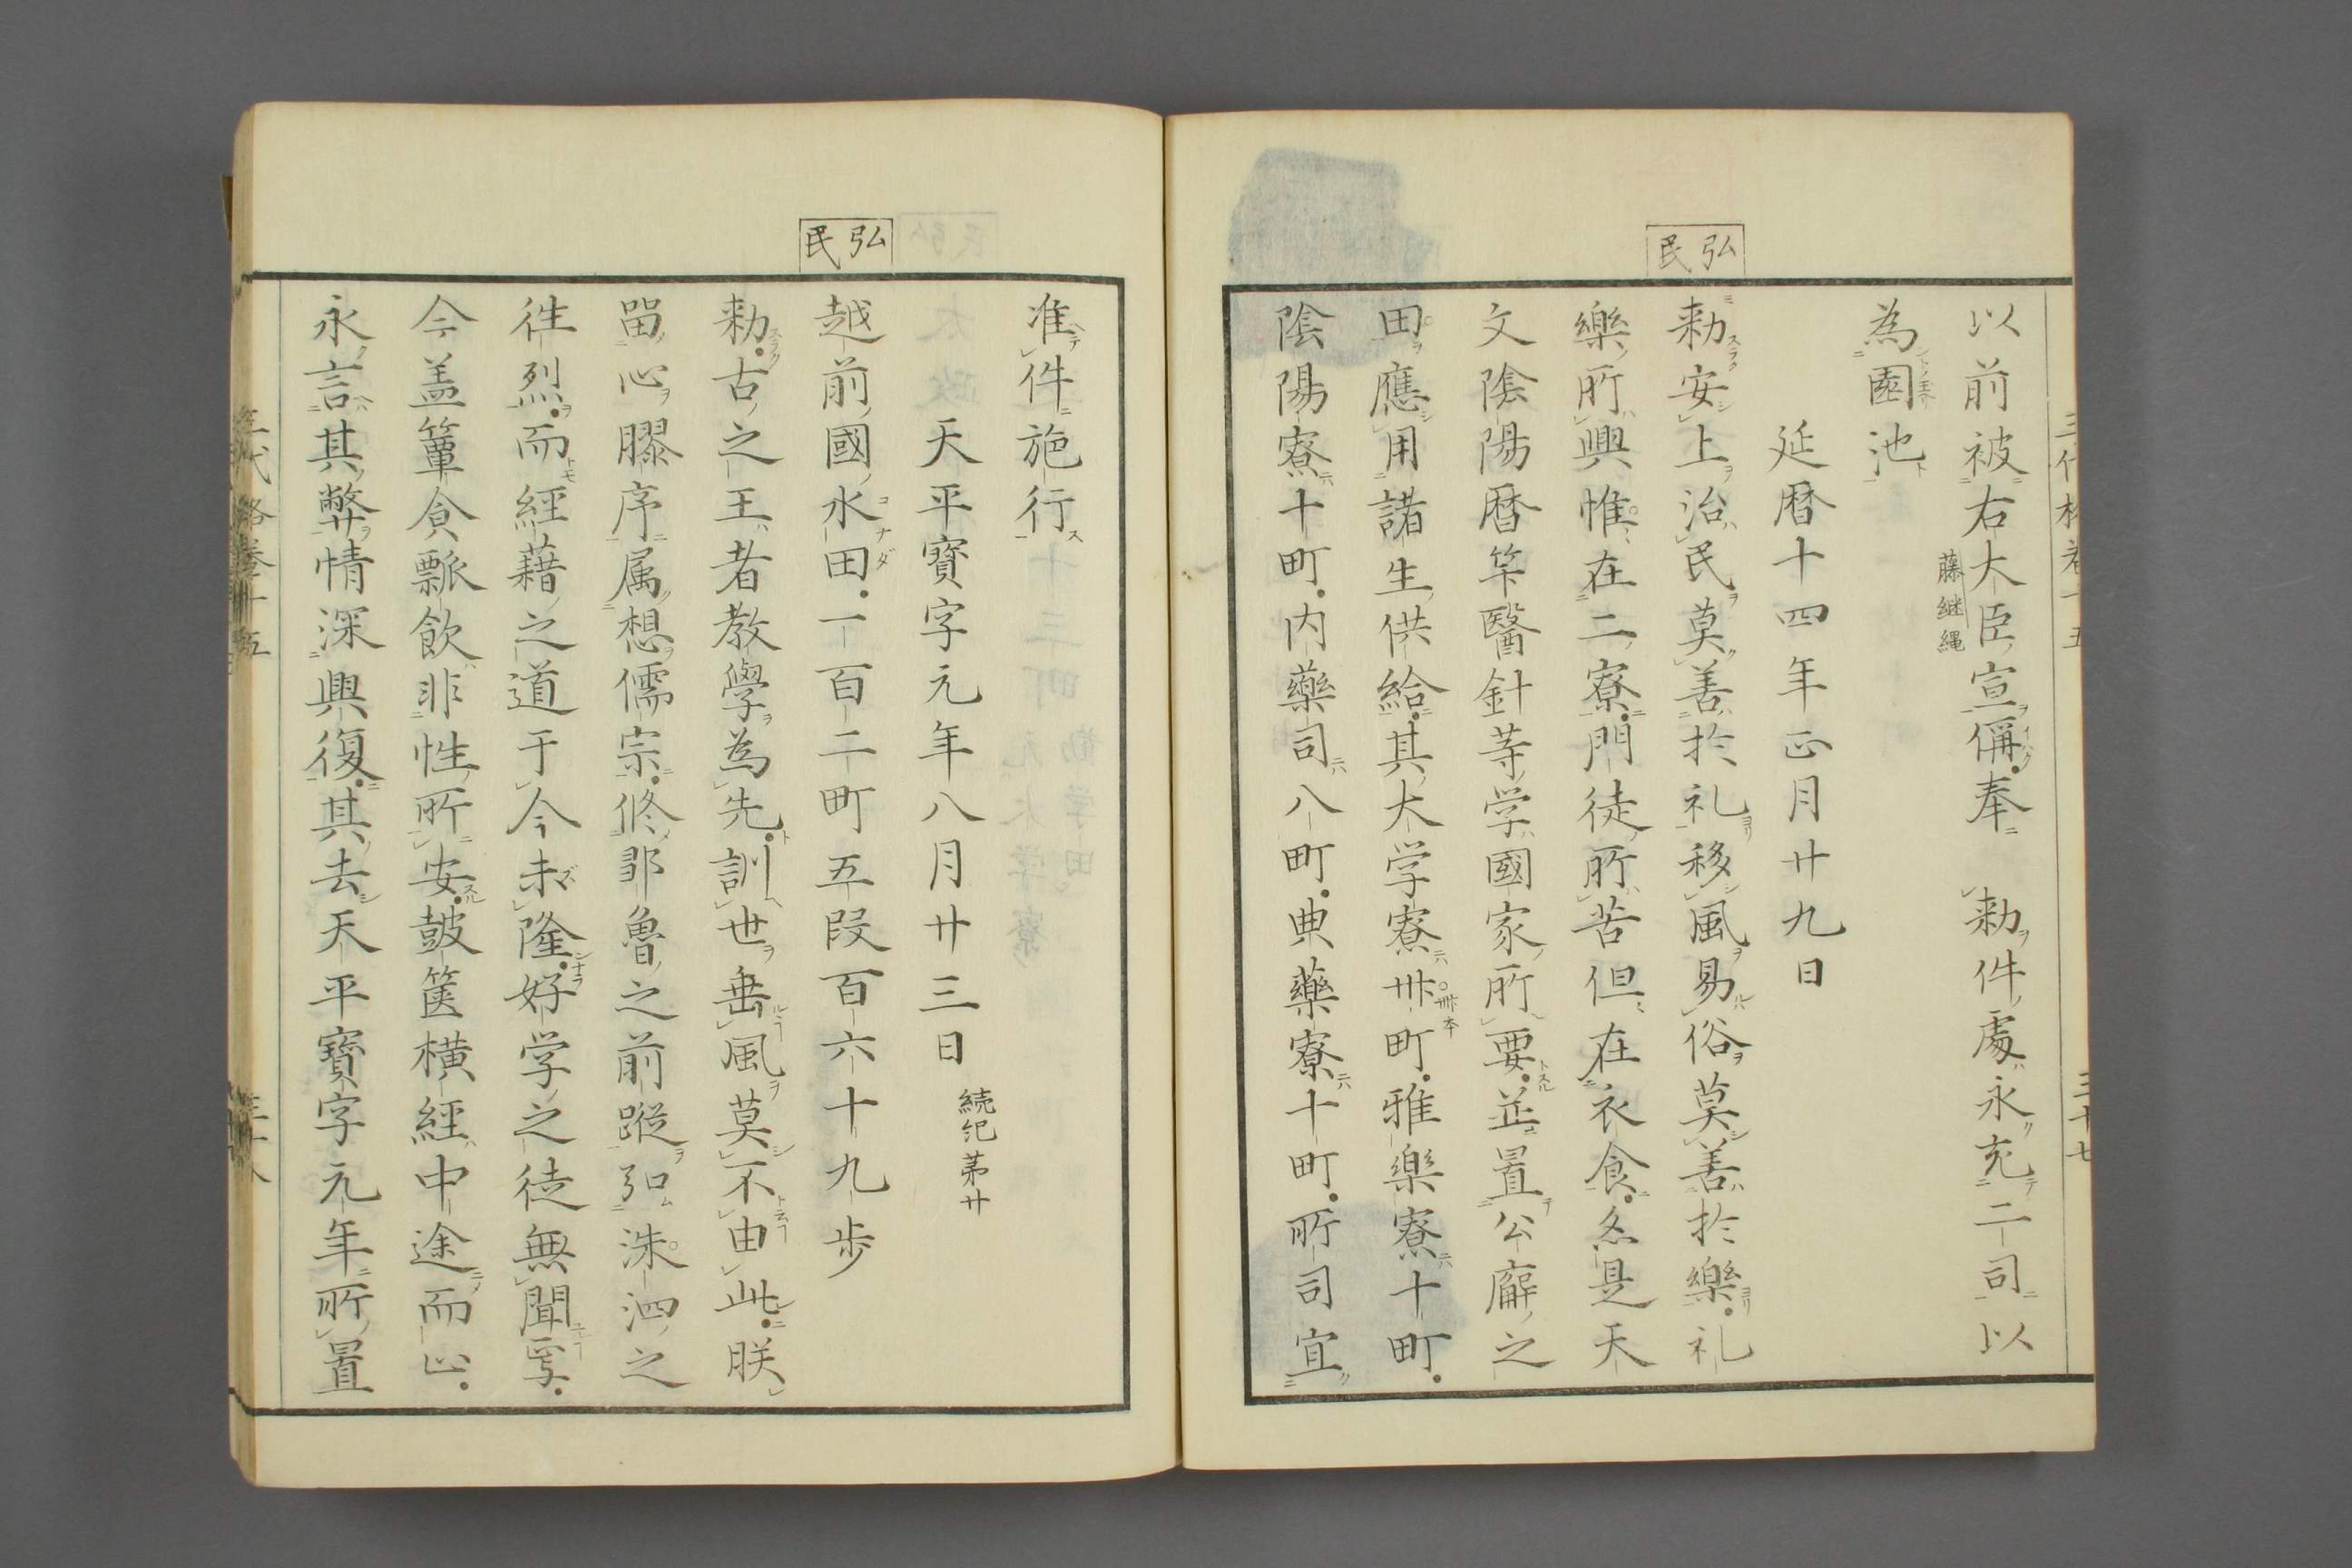 弘民
以前被右大臣宣偁奉　勅件處永充二司以
藤継縄
為園池
延暦十四年正月廿九日
勅安上治民莫善於礼移風易俗莫善於樂礼
樂所興惟在二寮門徒所苦但在衣食亦是天
文陰陽暦竿醫針等学國家所要並置公廨之
田應用諸生供給其大学寮卅町雅楽寮十町
卌本
陰陽寮十町内藥司八町典藥寮十町所司宜
弘民
准件施行
天平寶字元年八月廿三日
続紀苐廿
越前國水田一百二町五段百六十九歩
コナダ
勅古之王者教學為先訓世垂風莫不由此朕
留心膠序属想儒宗修鄒魯之前蹤弘洙泗之
往烈而經藉之道于今未隆好学之徒無聞焉
今盖簞食瓢飲非性所安皷篋横經中途而止
永言其弊情深興復其去天平寶字元年所置
三代格巻十五